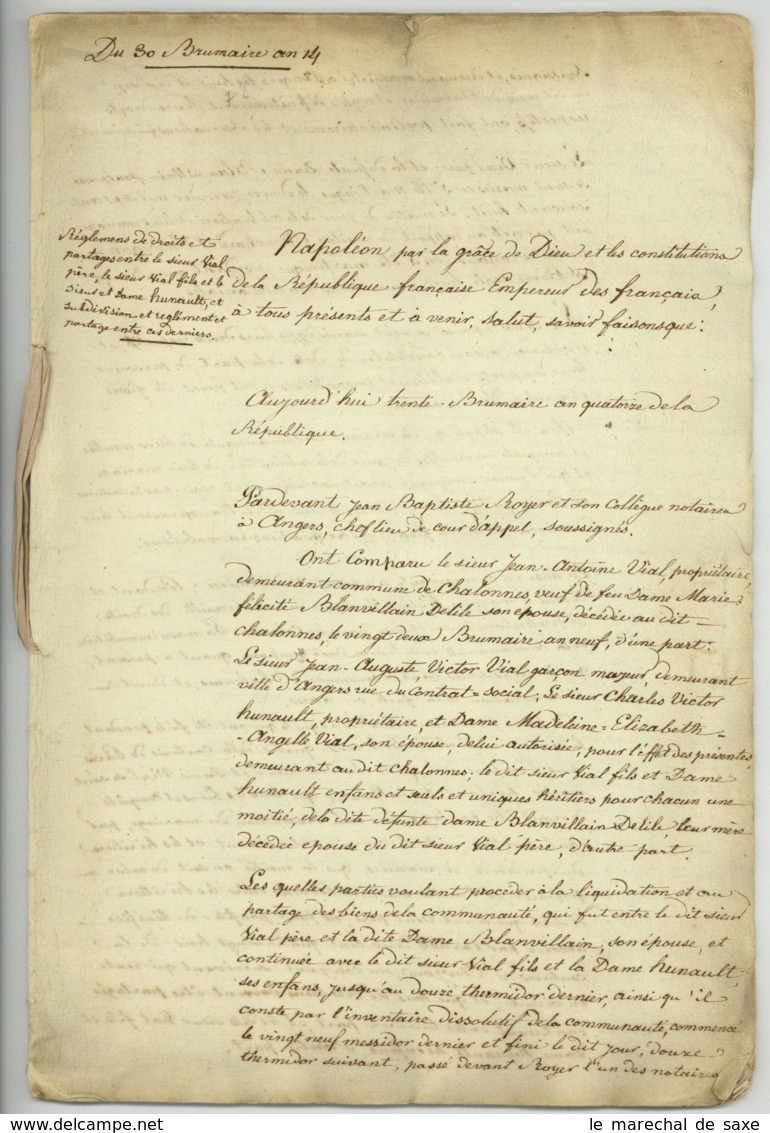 Du 30 Brumaire an 14
Réglemens de droits et
partages entre le sieur Vial
père, le sieur Vial fils et le
sieur et Dame hunault, et
subdivision et reglement et
partage entre ces derniers.
Napoléon par la grâce de Dieu et les constitutions
de la République française Empereur des français,
à tous présents et à venir, salut, savoir faisons que:
Aujourd'hui trente Brumaire an quatorze de la
République.
Pardevant Jean Baptiste Royer et son Collègue notaires
à Angers, chef lieu de cour d'appel, soussignés.
Ont Comparu le sieur Jean-Antoine Vial, propriétaire,
demeurant commune de Chalonnes, veuf de feu Dame Marie
félicité Blanvillain Delile son épouse, décédée au dit
chalonnes, le vingt deux Brumaire an neuf, d'une part.
Le sieur Jean-Auguste Victor Vial garçon majeur, demeurant
ville d'Angers rue du Contrat-social, Le sieur Charles Victor
hunault, propriétaire, et Dame Madeleine-Elizabeth-
-Angelle Vial, son épouse, de lui autorisée, pour l'effet des présentes,
demeurant au dit Chalonnes; le dit sieur Vial fils et Dame
hunault enfans et seuls et uniques héritiers pour chacun une
moitié, de la dite défunte dame Blanvillain Delile, leur mère
décédée epouse du dit sieur Vial père, d'autre part.
Les quelles parties voulant procéder à la liquidation et au
partage des biens de la communauté, qui fut entre le dit sieur
Vial père et la dite Dame Blanvillain, son épouse, et
continuée avec le dit sieur Vial fils et la Dame hunault,
ses enfans, jusqu'au douze thermidor dernier, ainsi qu'il
conste par l'inventaire dissolutif de la communauté, commencé
le vingt neuf messidor dernier et fini le dit jour, douze
thermidor suivant, passé devant Royer l'un des notaires
le marechal de saxe